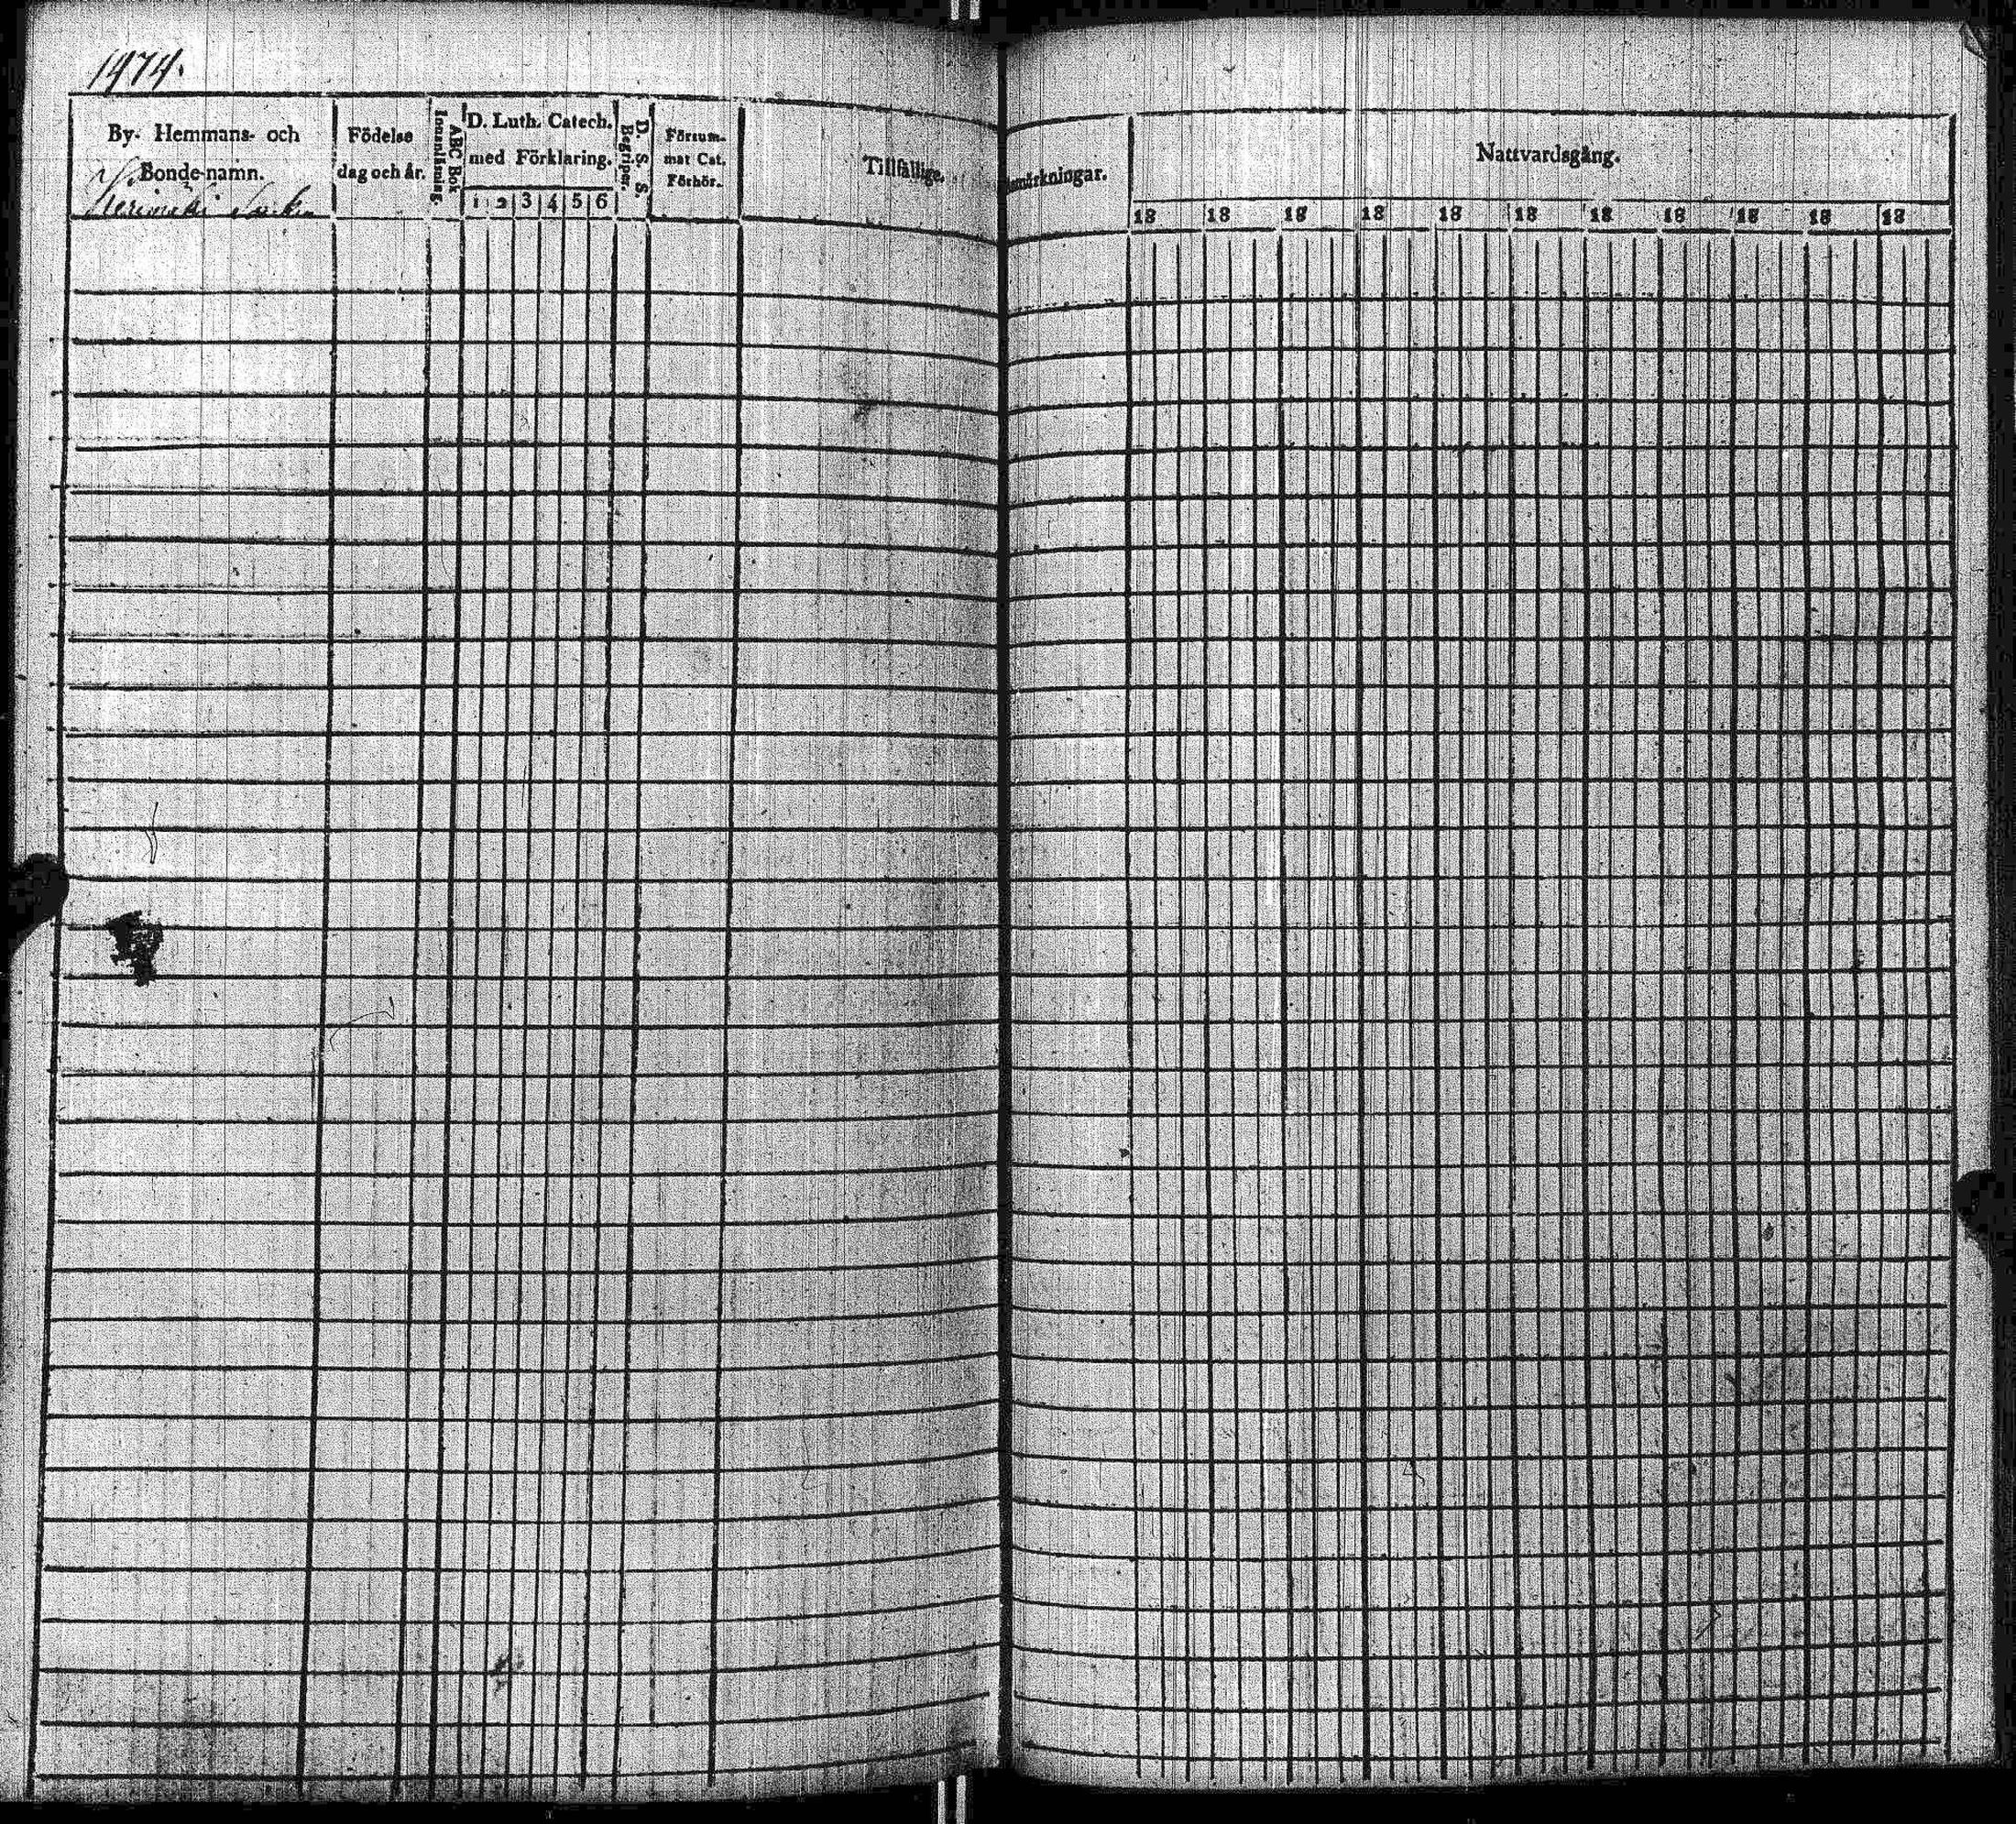 1474.
By- Hemmans- och
Bonde-namn.
Kerimäki
Födelse
dag och år.
ABC Bok
Innanläsning.
D. Luth. Catech.
med Förklaring.
1 2 3 4 5 6
D. S. S.
Begriper.
Försum-
mat Cat.
Förhör.
Tillfällige
anmärkningar.
Nattvardsgång.
18 18 18 18 18 18 18 18 18 18 18